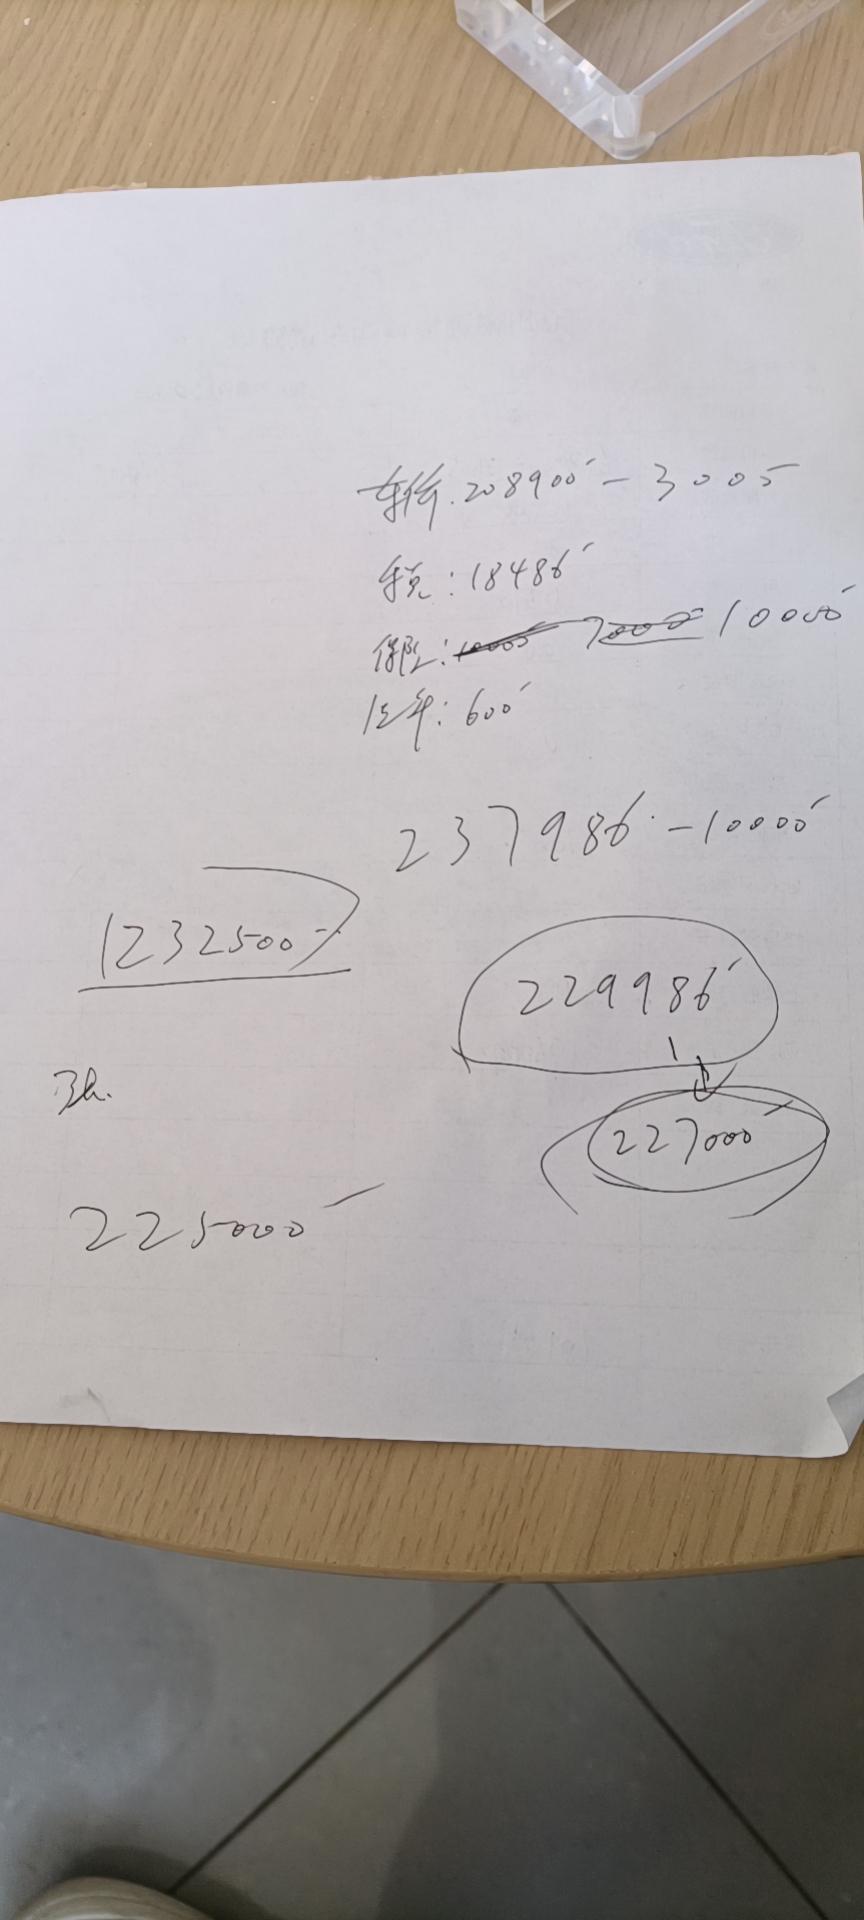 车价.208900-3005
车税:18486
保险:10000 7000 10000
上牌:600
237986-10000
1232500
229986
227000
225000